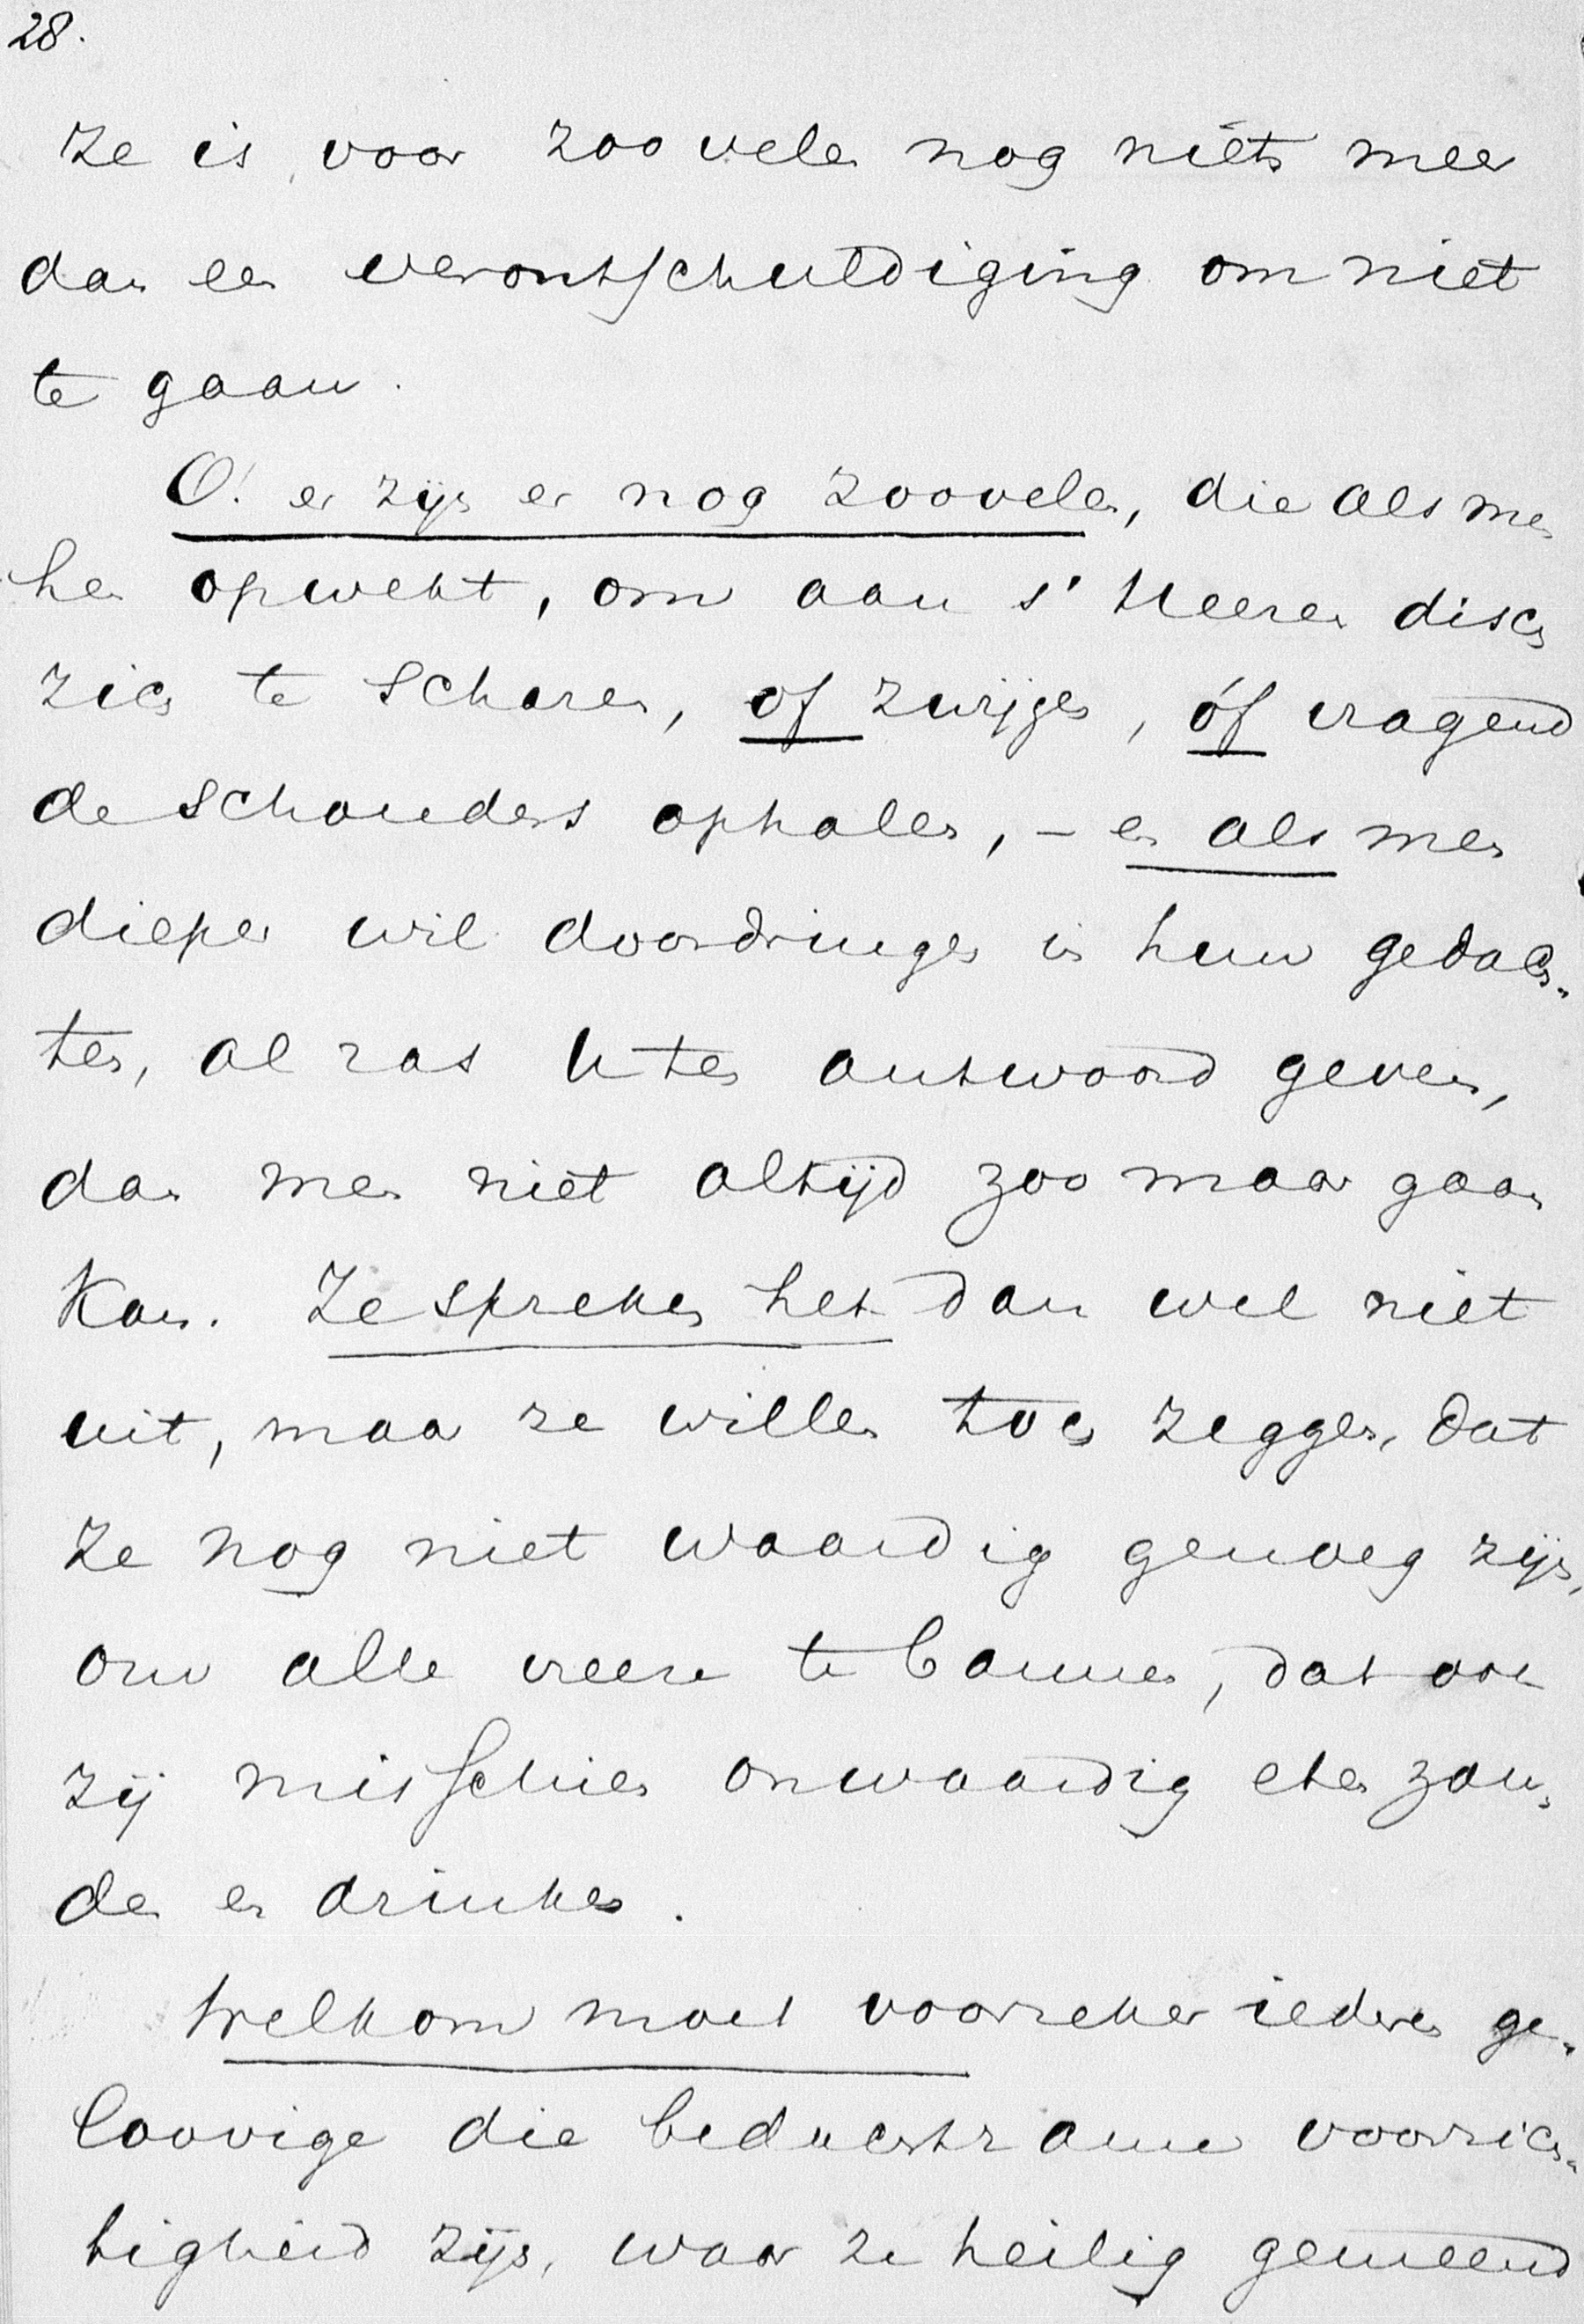 28.
Ze is voor zoo velen nog niets meer
dan een verontschuldiging om niet
te gaan.
O! er zijn er nog zoovelen, die als men
hen opwekt, om aan s' Heeren disch
zich te scharen, of zwijgen, óf vragend
de schouders ophalen, – en als men
dieper wil doordringen in hun gedach-
ten, al ras U ten antwoord geven,
dan men niet altijd zoo maar gaan
kan. Ze spreken het dan wel niet
uit, maar ze willen toch zeggen, dat
ze nog niet waardig genoeg zijn,
om alle vreeze te bannen, dat ook
zij misschien onwaardig eten zou-
den en drinken.
Welkom moet voorzeker iederen ge-
loovige die beduchtzame voorzich-
tigheid zijn, waar ze heilig gemeend